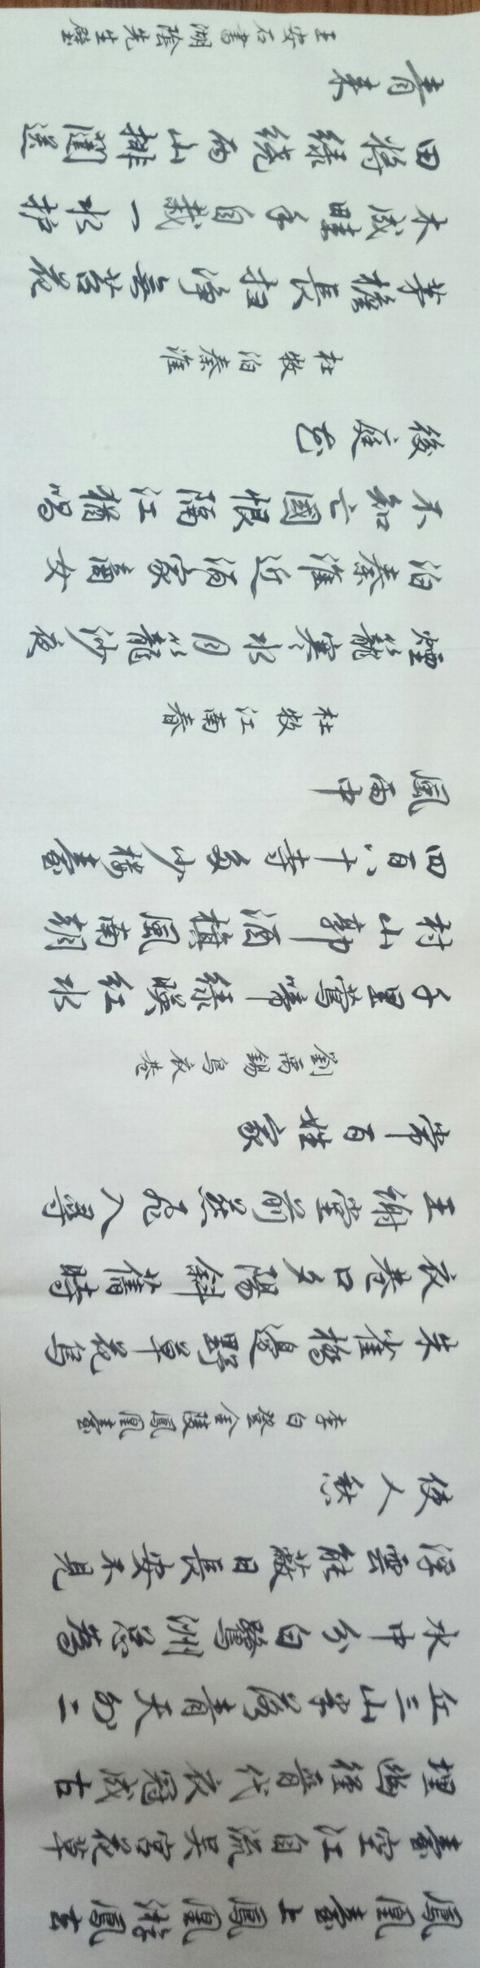 鳳凰臺上鳳凰游鳳去
臺空江自流吳宮花草
埋幽徑晉代衣冠成古
丘三山半落青天外二
水中分白鷺洲總為
浮雲能蔽日長安不見
使人愁
李白登金陵鳳凰臺
朱雀橋邊野草花烏
衣巷口夕陽斜舊時
王謝堂前燕飛入尋
常百姓家
劉禹錫烏衣巷
千里鶯啼綠映紅水
村山郭酒旗風南朝
四百八十寺多少樓臺
風雨中
杜牧江南春
煙籠寒水月籠沙夜
泊秦淮近酒家商女
不知亡國恨隔江猶唱
後庭花
杜牧泊秦淮
茅檐長掃淨無苔花
木成畦手自栽一水护
田將綠绕兩山排闥送
青来
王安石書湖陰先生壁